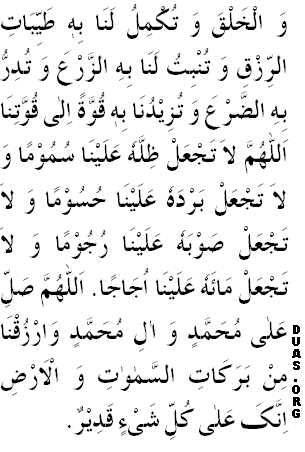 وَ الْخَلْقَ وَ تُكْمِلُ لَنَا بِهٖ طَيِّبَاتِ
الرِّزْقِ وَ تُنْبِتُ لَنَا بِهِ الزَّرْعَ وَ تُدِرُّ
بِهِ الضَّرْعَ وَ تَزِيْدُنَا بِهٖ قُوَّةً اِلٰى قُوَّتِنَا
اَللّٰهُمَّ لاَ تَجْعَلْ ظِلَّهٗ عَلَيْنَا سُمُوْمًا وَ
لاَ تَجْعَلْ بَرْدَهٗ عَلَيْنَا حُسُوْمًا وَ لاَ
تَجْعَلْ صَوْبَهٗ عَلَيْنَا رُجُوْمًا وَ لاَ
تَجْعَلْ مَائَهٗ عَلَيْنَا اُجَاجًا. اَللّٰهُمَّ صَلِّ
عَلٰى مُحَمَّدٍ وَ اٰلِ مُحَمَّدٍ وَارْزُقْنَا
مِنْ بَرَكَاتِ السَّمٰوٰتِ وَ الْاَرْضِ
اِنَّكَ عَلٰى كُلِّ شَیْءٍ قَدِيْرٌ.
DUAS.ORG